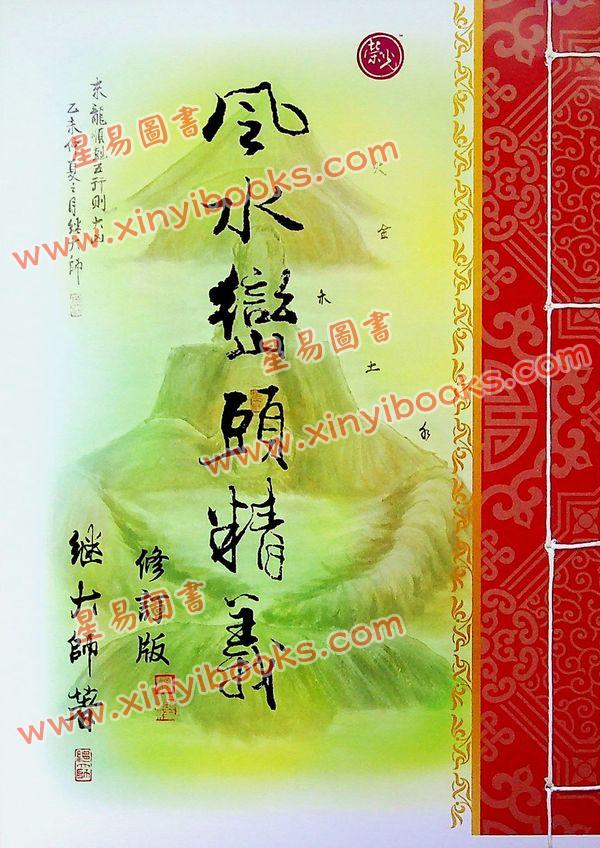 榮光
風水巒頭精義
修訂版
继大師著
乙未仲夏之月继大師
火
金
木
土
水
星易圖書
www.xinyibooks.com
星易圖書
www.xinyibooks.com
星易圖書
www.xinyibooks.com